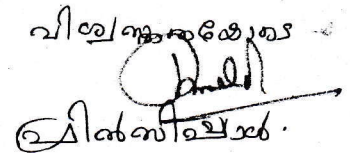 വിശ്വസ്തതയോടെ
പ്രിൻസിപ്പാൾ.